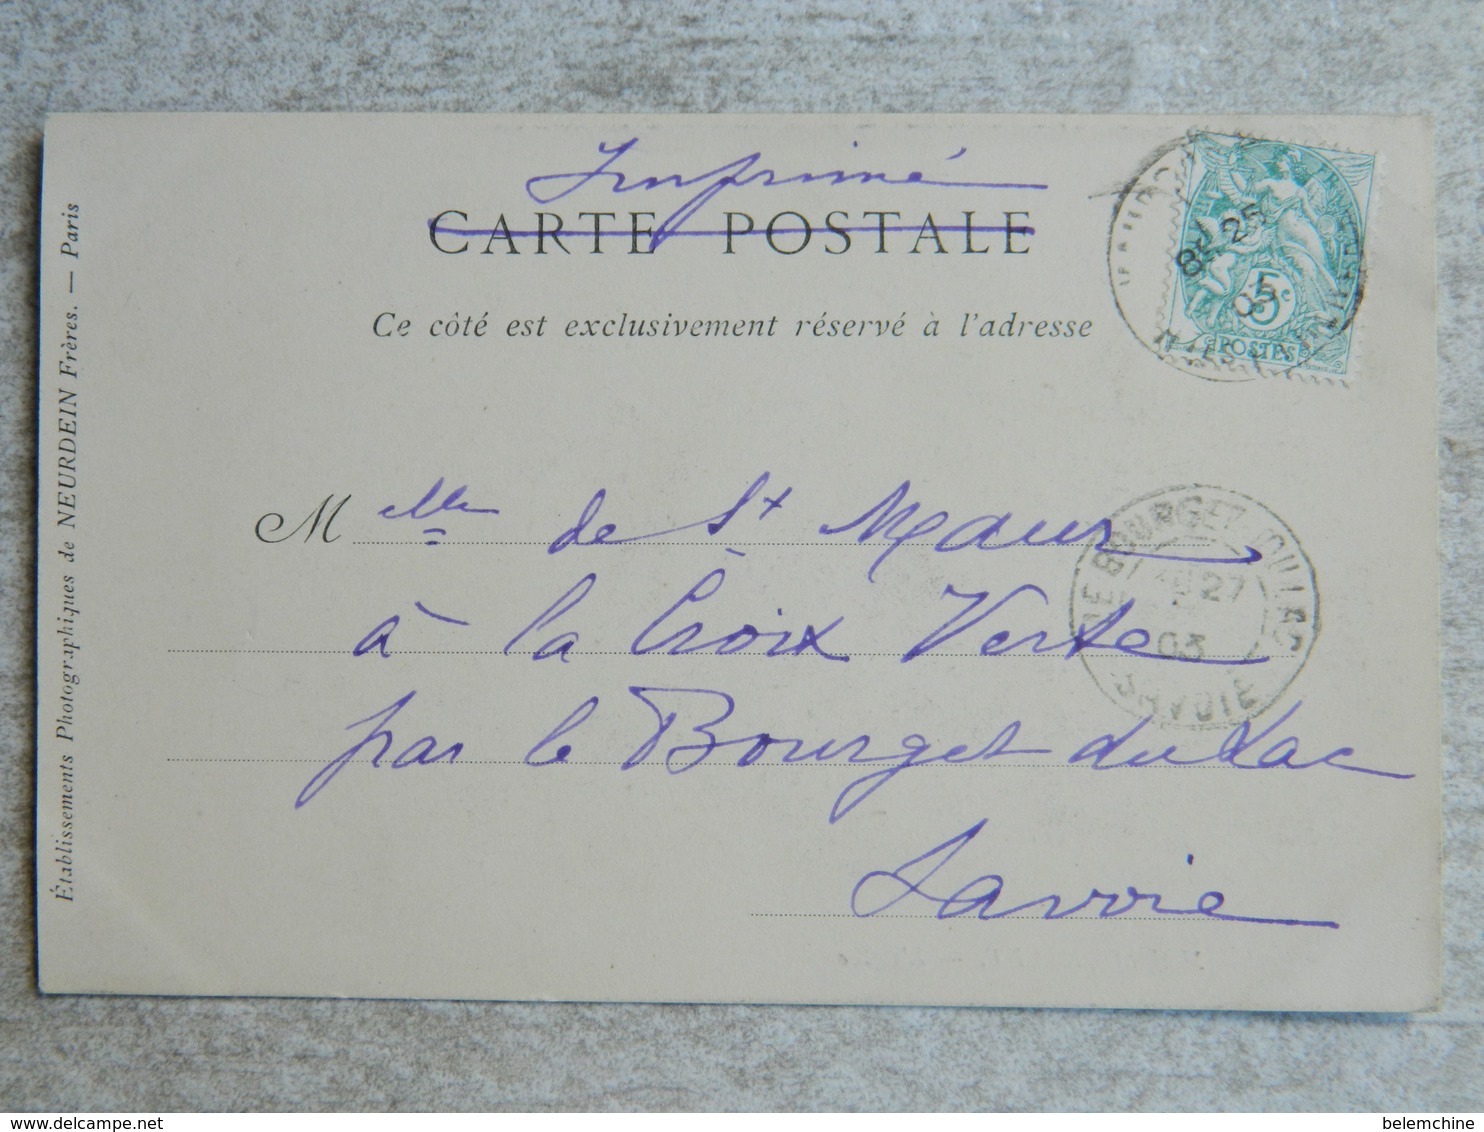 Imprimé
CARTE POSTALE
Ce côté est exclusivement réservé à l'adresse
8E 25
03
5c
POSTES
Melle de St Meaur
à la Croix Verte
par le Bourget du Lac
Savoie
LE BOURGET
27
03
SAVOIE
Établissements Photographiques de NEURDEIN Frères. — Paris
delcampe.net
belemchine